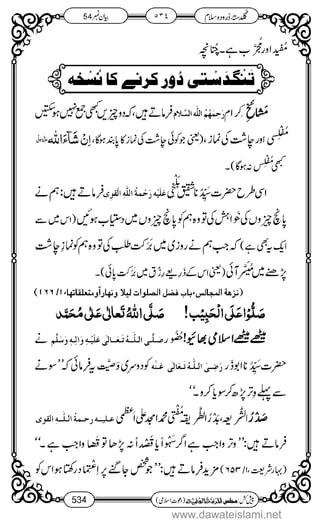 گلدستہ دُرود و سلام ٥٣٤ بیان نمبر 54
مُفید اور مُجرَّب ہے۔ چُنانچہ
تَنگدَسْتی دُور کرنے کا نُسْخَہ
مَشائخِ کِرام رَحِمَہُمُ اللّٰہُ السَّلَام فرماتے ہیں، کہ دو چیزیں کبھی جمع نہیں ہوسکتیں
مُفلِسی اور چاشت کی نماز، (یعنی جو کوئی چاشت کی نماز کا پابند ہوگا، اِنْ شَآءَ اللّٰہ
کبھی مُفلس نہ ہوگا)۔
اسی طرح حضرتِ سَیِّدُنا شقیق بلخی عَلَیْہِ رَحْمَۃُ اللّٰہِ الْقَوِی فرماتے ہیں: ہم نے
پانچ چیزوں کی خواہش کی تو وہ ہم کو پانچ چیزوں میں دستیاب ہوئیں (اس میں سے
ایک یہ بھی ہے کہ) جب ہم نے روزی میں بَرَکت طلب کی تو وہ ہم کو نمازِ چاشت
پڑھنے میں مُیَسَّر آئی (یعنی اس کے ذریعے رِزْق میں بَرَکت پائی)۔
(نزھۃ المجالس، باب فضل الصلوات لیلا ونھارا ومتعلقاتھا، ١٦٦/١)
صَلُّوْا عَلَی الْحَبِیْب! صَلَّی اللّٰہُ تَعَالٰی عَلٰی مُحَمَّد
میٹھے میٹھے اسلامی بھائیو! حُضُور صَلَّی اللّٰہُ تَعَالٰی عَلَیْہِ وَاٰلِہٖ وَسَلَّم نے
حضرتِ سَیِّدُنا ابوذر رَضِیَ اللّٰہُ تَعَالٰی عَنْہُ کو دوسری وصیَّت یہ فرمائی کہ ’’سونے
سے پہلے وتر پڑھ کر سویا کرو۔‘‘
صَدْرُ الشَّریعہ، بَدْرُ الطَّریقہ مُفتی محمد امجد علی اعظمی عَلَیْہِ رَحمَۃُ اللّٰہِ القَوِی
فرماتے ہیں: ’’وتر واجب ہے اگر سَہْواً یا قَصْداً نہ پڑھا تو قضا واجب ہے۔‘‘
(بہارِ شریعت، ٦٥٣/١) مزید فرماتے ہیں: ’’جو شخص جاگنے پر اعتماد رکھتا ہو اس کو
پیش کش: مجلس اَلْمَدِیْنَۃُ الْعِلْمِیَّۃ (دعوتِ اسلامی) 534
www.dawateislami.net